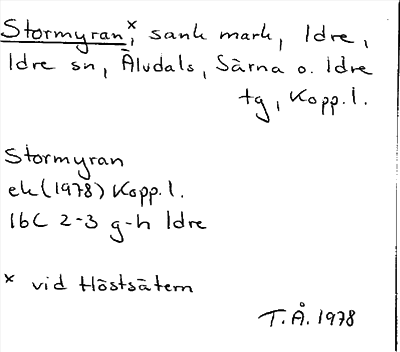 Stormyran,ˣ sank mark, Idre,
Idre sn, Älvdals, Särna o. Idre
tg, Kopp.l.
Stormyran
ek (1978) Kopp.l.
16C 2-3 g-h Idre
x vid Höstsätern
T.Å. 1978